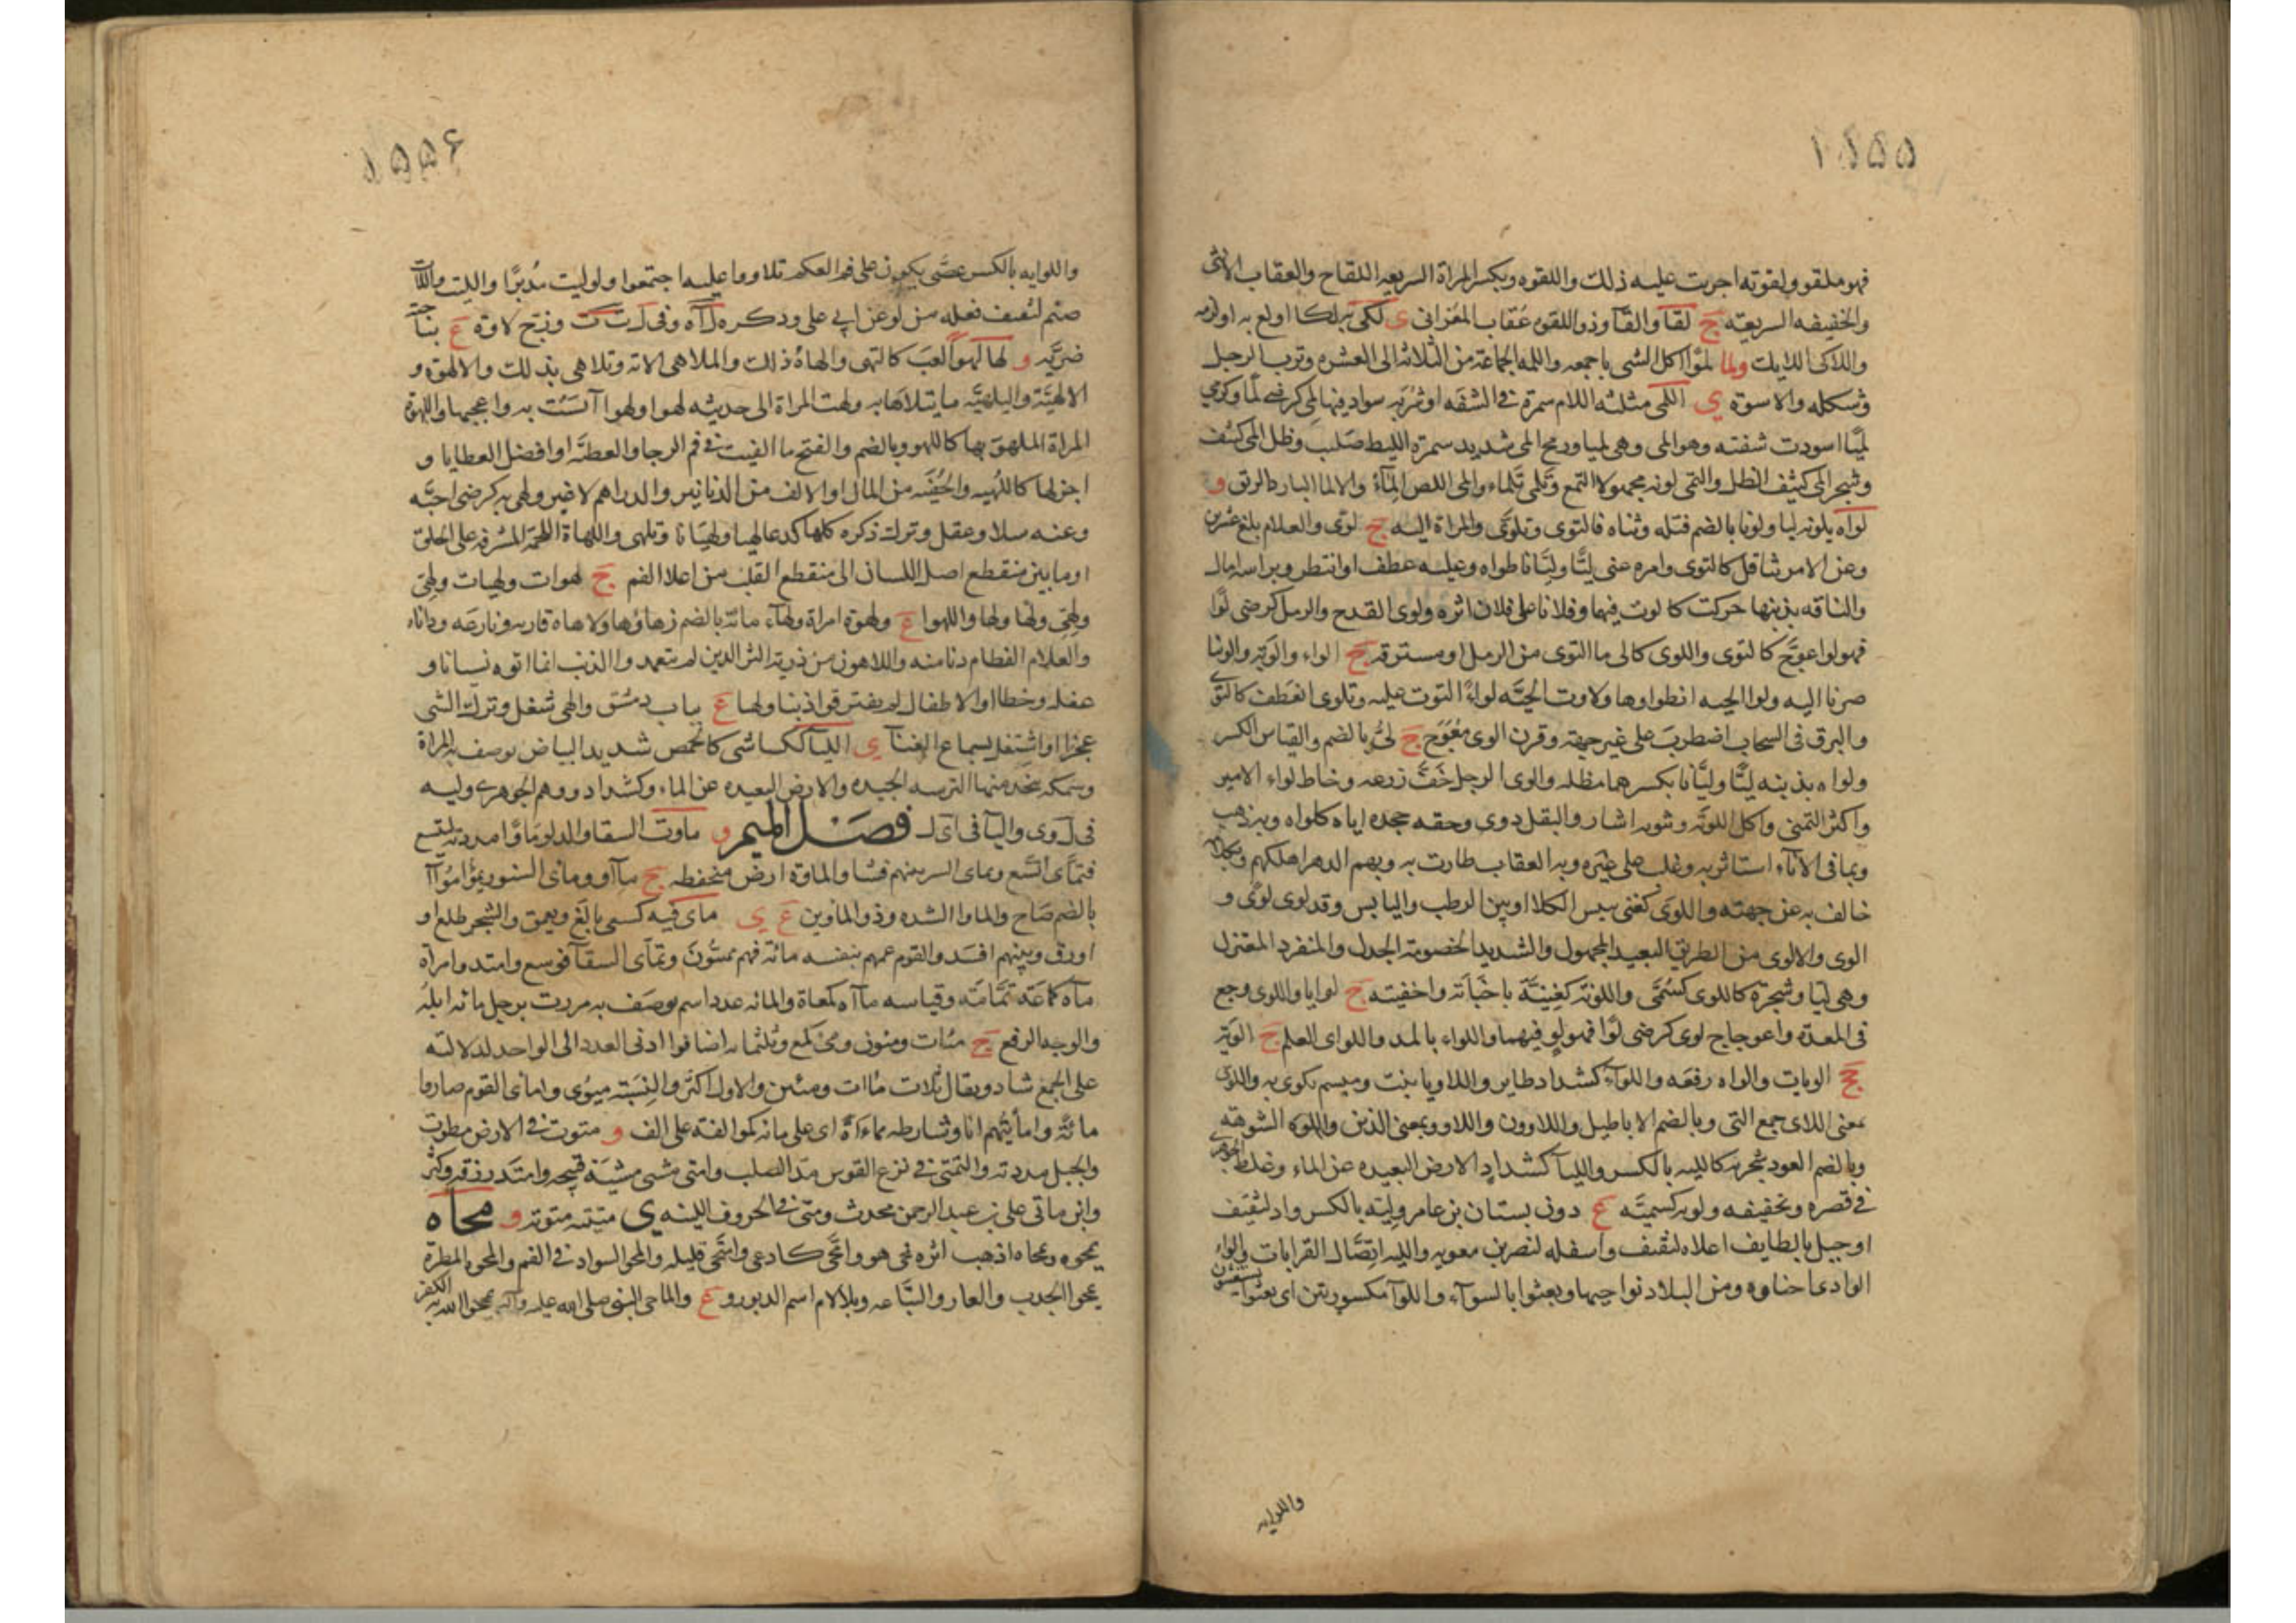 ۱۵۵۵
فهو ملقو ولقوته اجريت عليه ذلك واللقوه ويكسر المراة السريعه اللقاح والعقاب الانثى
والخفيفه السريعته ج لقا والقآ وذو اللقوه عقاب المغزانى ى لكى به لكا اولع به او لزمه
واللاكى اللايك ولما لموا اكل الشى باجمعه واللمه الجماعة من الثلاثه الى العشره وترب الرجل
وشكله والاسوة ى اللمى مثلثه اللام سمرة فى الشفه او شربه سواد فيها لمى كرضى لما وكرمى
لميا اسودت شفته وهو المى وهى لميا ورمح المى شديد سمرة الليط صلب وظل المى كثيف
وشجر المى كثيف الظل والتمى لونه مجهولا التمع وتلمى تلماء والمى اللص المآء والالما البارد الريق و
لواه يلويه ليا ولويا بالضم فتله وثناه فالتوى وتلوى والمراة اليه ج لوى والغلام بلغ عشرين
وعن الامر تثاقل كالتوى وامره عنى ليا وليانا طواه وعليه عطف او انتظر وبراسه امال
والناقه بذنبها حركت كالوت فيهما وفلانا على فلان اثره ولوى القدح والرمل كرضى لوا
فهو لو اعوج كالتوى واللوى كالى ما التوى من الرمل او مسترقه ج الواء والوية والوينا
صرنا اليه ولوا الحيه انطواوها ولاوت الحيه لواء التوت عليه وتلوى انعطف كالتوى
والبرق فى السحاب اضطرب على غير جهته وقرن الوى معوج ج لى بالضم والقياس الكسر
ولواه بدينه ليا وليانا بكسرهما مطله والوى الرجل خف زرعه وخاط لواء الامير
واكثر التمنى واكل اللويه وثوبه اشار والبقل ذوى وحقه جحده اياه كلواه وبه ذهب
وبما فى الاناء استاثر به وغلب على غيره وبه العقاب طارت به وبهم الدهر اهلكهم وبكلامه
خالف به عن جهته واللوى كغنى يبيس الكلا او بين الرطب واليابس وقد لوى لوى و
الوى والالوى من الطريق البعيد المجهول والشديد الخصومة الجدل والمنفرد المعتزل
وهى ليا وشجرة كاللوى كسمى واللويه كغنية ما خبأته واخفيته ج لوايا واللوى وجع
فى المعده واعوجاج لوى كرضى لوا فهو لو فيهما واللواء بالمد واللواى العلم ج الويه
جج الويات والواه رفعه واللوآء كشداد طاير واللاويا بنت وميسم يكوى به واللوى
بمعنى اللاى جمع التى وبالضم الاباطيل واللاوون واللاو وبمعنى الذين واللوه الشوهة
وبالضم العود يتبخر به كالليه بالكسر والليآ كشداد الارض البعيده عن الماء وغلط الجوهرى
فى قصره وتخفيفه ولويه كسميه ع دون بستان بن عامر وليه بالكسر واد لثقيف
او جبل بالطايف اعلاه لثقيف واسفله لنصر بن معويه والليه ايضا القرابات والواء
الوادى احناوه ومن البلاد نواحيها وبعثوا بالسوآء واللوآ مكسورتين اى بعثوا يستغيثون
واللوايه
۱۵۵۶
واللوايه بالكسر عصى يكون على فم العكم تلاووا عليه اجتمعوا ولوليت مدبرا وليت واللات
صنم لثقيف فعله من لوى عن ابى على وذكره ل ا ه وفى ل ت ت وزج لاوة ع بناحية
ضريه و لها لهوا لعب كالتهى والهاه ذلك والملاهى الاته وتلاهى بذلك والالهوة و
الالهية والتلهيه ما يتلاها به ولهت المراة الى حديثه لهوا ولهوا آنست به واعجبها واللهوة
المراة الملهو بها كاللهو وبالضم والفتح ما القيت فى فم الرحا والعطية او افضل العطايا و
اجزلها كاللهيه والحفنه من المال او الالف من الدنانير والدراهم لا غير ولهى به كرضى احبه
وعنه سلا وغفل وترك ذكره كلها كدعا لهيا ولهيانا وتلهى واللهاة اللحمة المشرفه على الحلق
او ما بين منقطع اصل اللسان الى منقطع القلب من اعلا الفم ج لهوات ولهيات ولهى
ولهى ولها ولها واللهوا ع ولهوة امراة ولهاء مائة بالضم زهاؤها ولاهاه قاربه ونازعه وداناه
والغلام الفطام دنا منه واللاهون من ذرية البشر الذين لم يتعمدوا الذنب انما اتوه نسيانا و
غفله وخطا او الاطفال لم يقترفوا ذنبا ولهيا ع بباب دمشق والهى شغل وترك الشى
عجزا او اشتغل بسماع الغنآ ى الليآ ككساشى كالحمص شديد البياض يوصف به المراة
وسمكه يتخذ منها الترسه الجيده والارض البعيده عن الماء وكشداد ووهم الجوهرى وليه
فى ل وى واليآ فى اى ل فصل الميم و ماوت السقا والدلو ماوا مددته ليتسع
فتمأى اتسع وتماى الشر بينهم فشا والماوة ارض منخفضه ج مآو ومائى السنور يمؤ امواآ
بالضم صاح والماوا الشده وذو الماوين ع ى مأى فيه كسعى بالغ ويعمق والشجر طلع او
اورق وبينهم افسد والقوم عمهم بنفسه مائة فهم ممئون وتمأى السقآ توسع وامتد وامراة
مآه كماعة نمامة وقياسه مآاه كمعاة والمائه عدد اسم يوصف به مررت برجل مائه ابله
والوجه الرفع ج مئات ومئون ومى كمع وثلثمايه اضافوا ادنى العدد الى الواحد لدلالته
على الجمع شاذ ويقال ثلاث مئات ومئين والاول اكثر والنسبة مئوى وامأى القوم صاروا
مائة وامأيتهم انا وشارطه مماءاة اى على مائه كموالفة على الف و متوت فى الارض مطوت
والحبل مددته والتمتى فى نزع القوس مد الصلب وامتى مشى مشية قبيحه وامتد رزقه وكثر
وابن ماتى على بن عبد الرحمن محدث ومتى فى الحروف اللينه ى متيته متوته و محاه
يمحوه ويمحاه اذهب اثره فمحى هو وامحى كادعى وامتحى قليله والمحو السواد فى القمر والمحوة المطرة
يمحو الجدب والعار والساعه وبلا لام اسم الدبور و ع والماحى النبى صلى الله عليه وآله يمحو الله به الكفر